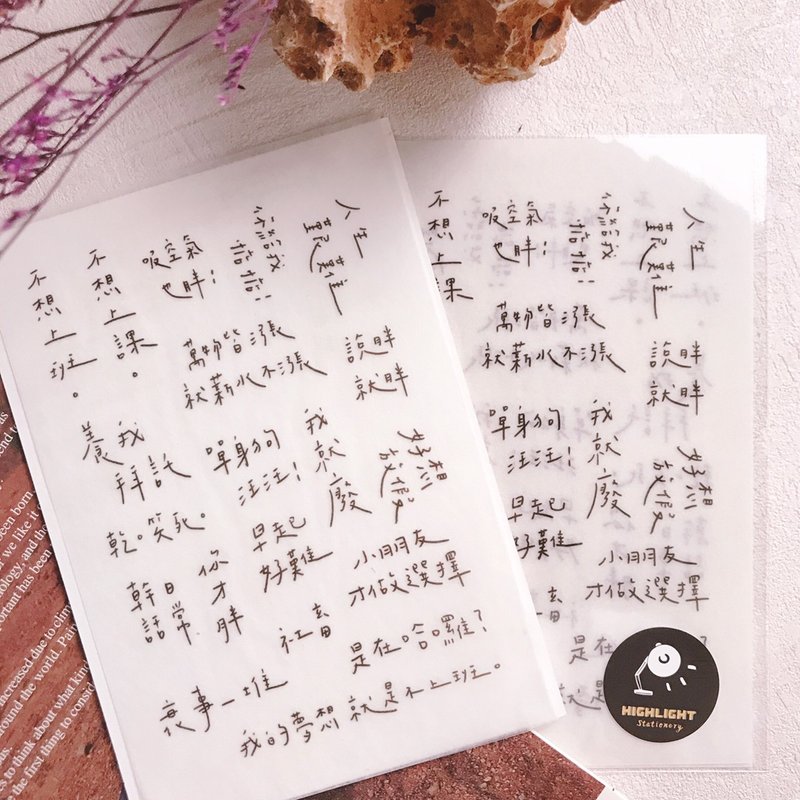 人生
艱難
你給我
惦惦！
吸空氣
也胖！
不想上課。
不想上班。
萬物皆漲
就薪水不漲
說胖
就胖
好想
放假
我就廢
單身狗
汪汪！
拜託
養我
乾。笑死。
早起
好難
小朋友
才做選擇
你才胖
日常
幹話
社畜
是在哈囉？
衰事一堆
我的夢想就是不上班。
人生
艱難
你給我
惦惦！
吸空氣
也胖！
不想上課
萬物皆漲
就薪水不漲
說胖
就胖
好想
放假
我就廢
單身狗
汪汪！
早起
好難
小朋友
才做選擇
畜
是在
？
就是
HIGHLIGHT
Stationery
been born.
we like it
ology, and the
ortant has been
increased due to clim
around the world. Pain
to think about what kind
the first thing to consid